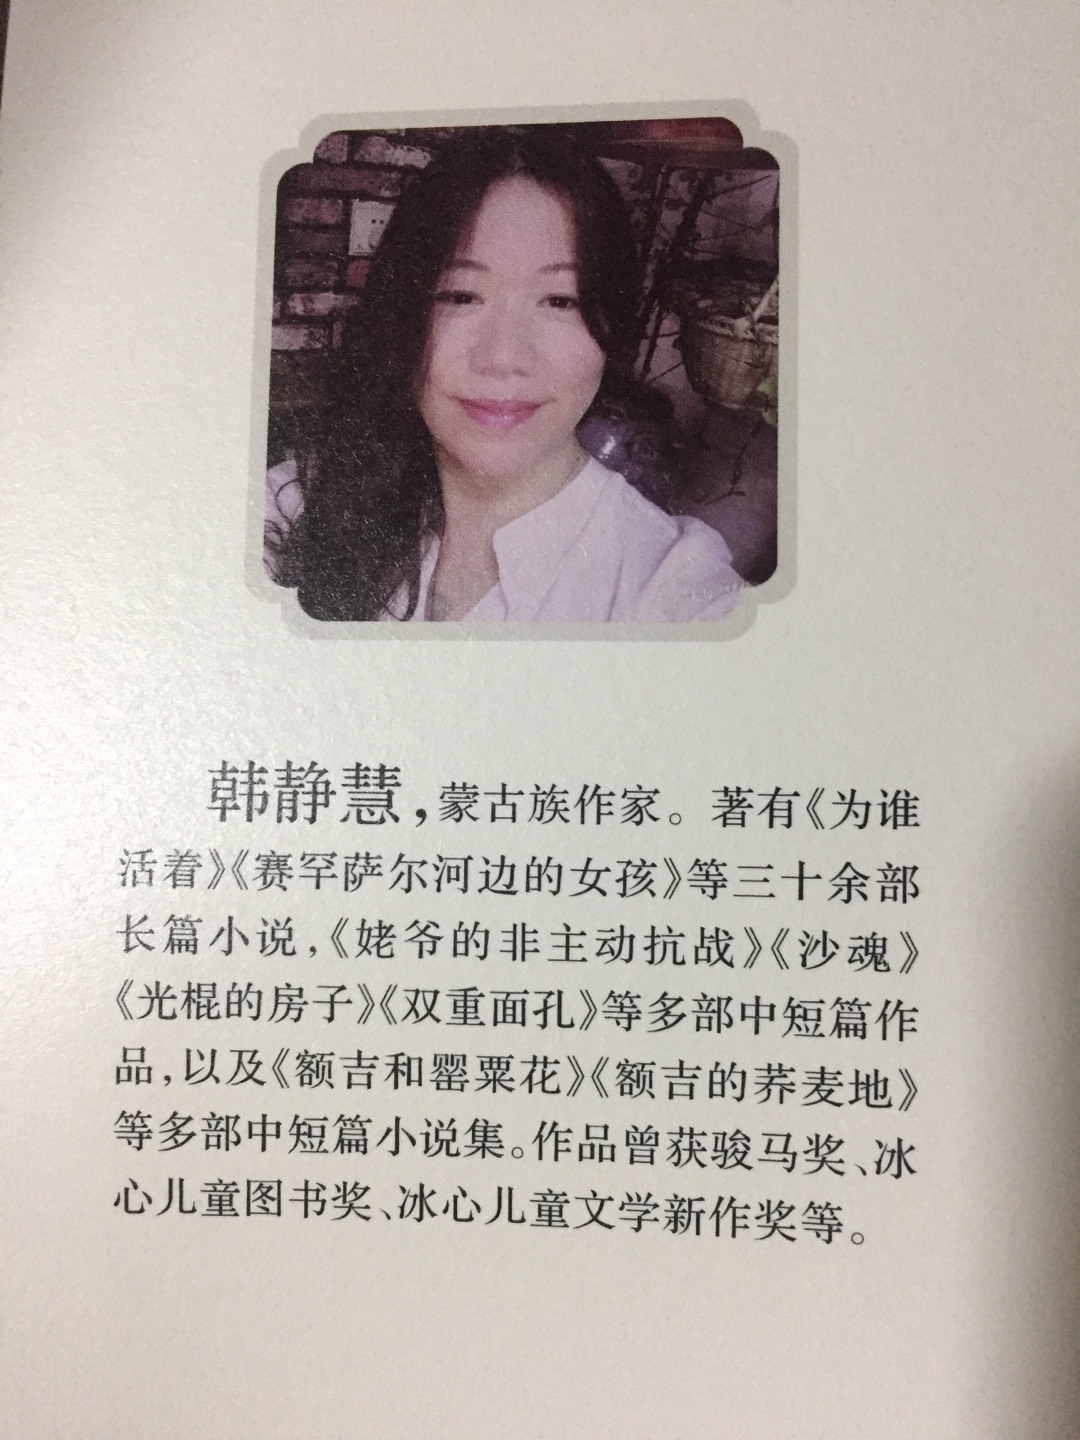 韩静慧,蒙古族作家。著有《为谁
活着》《赛罕萨尔河边的女孩》等三十余部
长篇小说,《姥爷的非主动抗战》《沙魂》
《光棍的房子》《双重面孔》等多部中短篇作
品,以及《额吉和罂粟花》《额吉的荞麦地》
等多部中短篇小说集。作品曾获骏马奖、冰
心儿童图书奖、冰心儿童文学新作奖等。